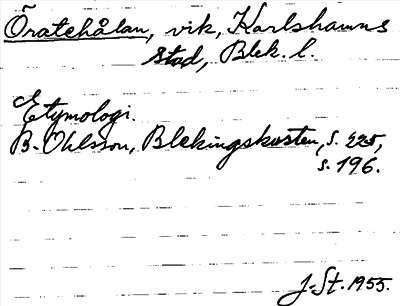 Öratehålan, vik, Karlshamns
stad, Blek. l.
Etymologi.
B. Ohlsson, Blekingskusten, s. 225,
s. 196.
J-St. 1955.